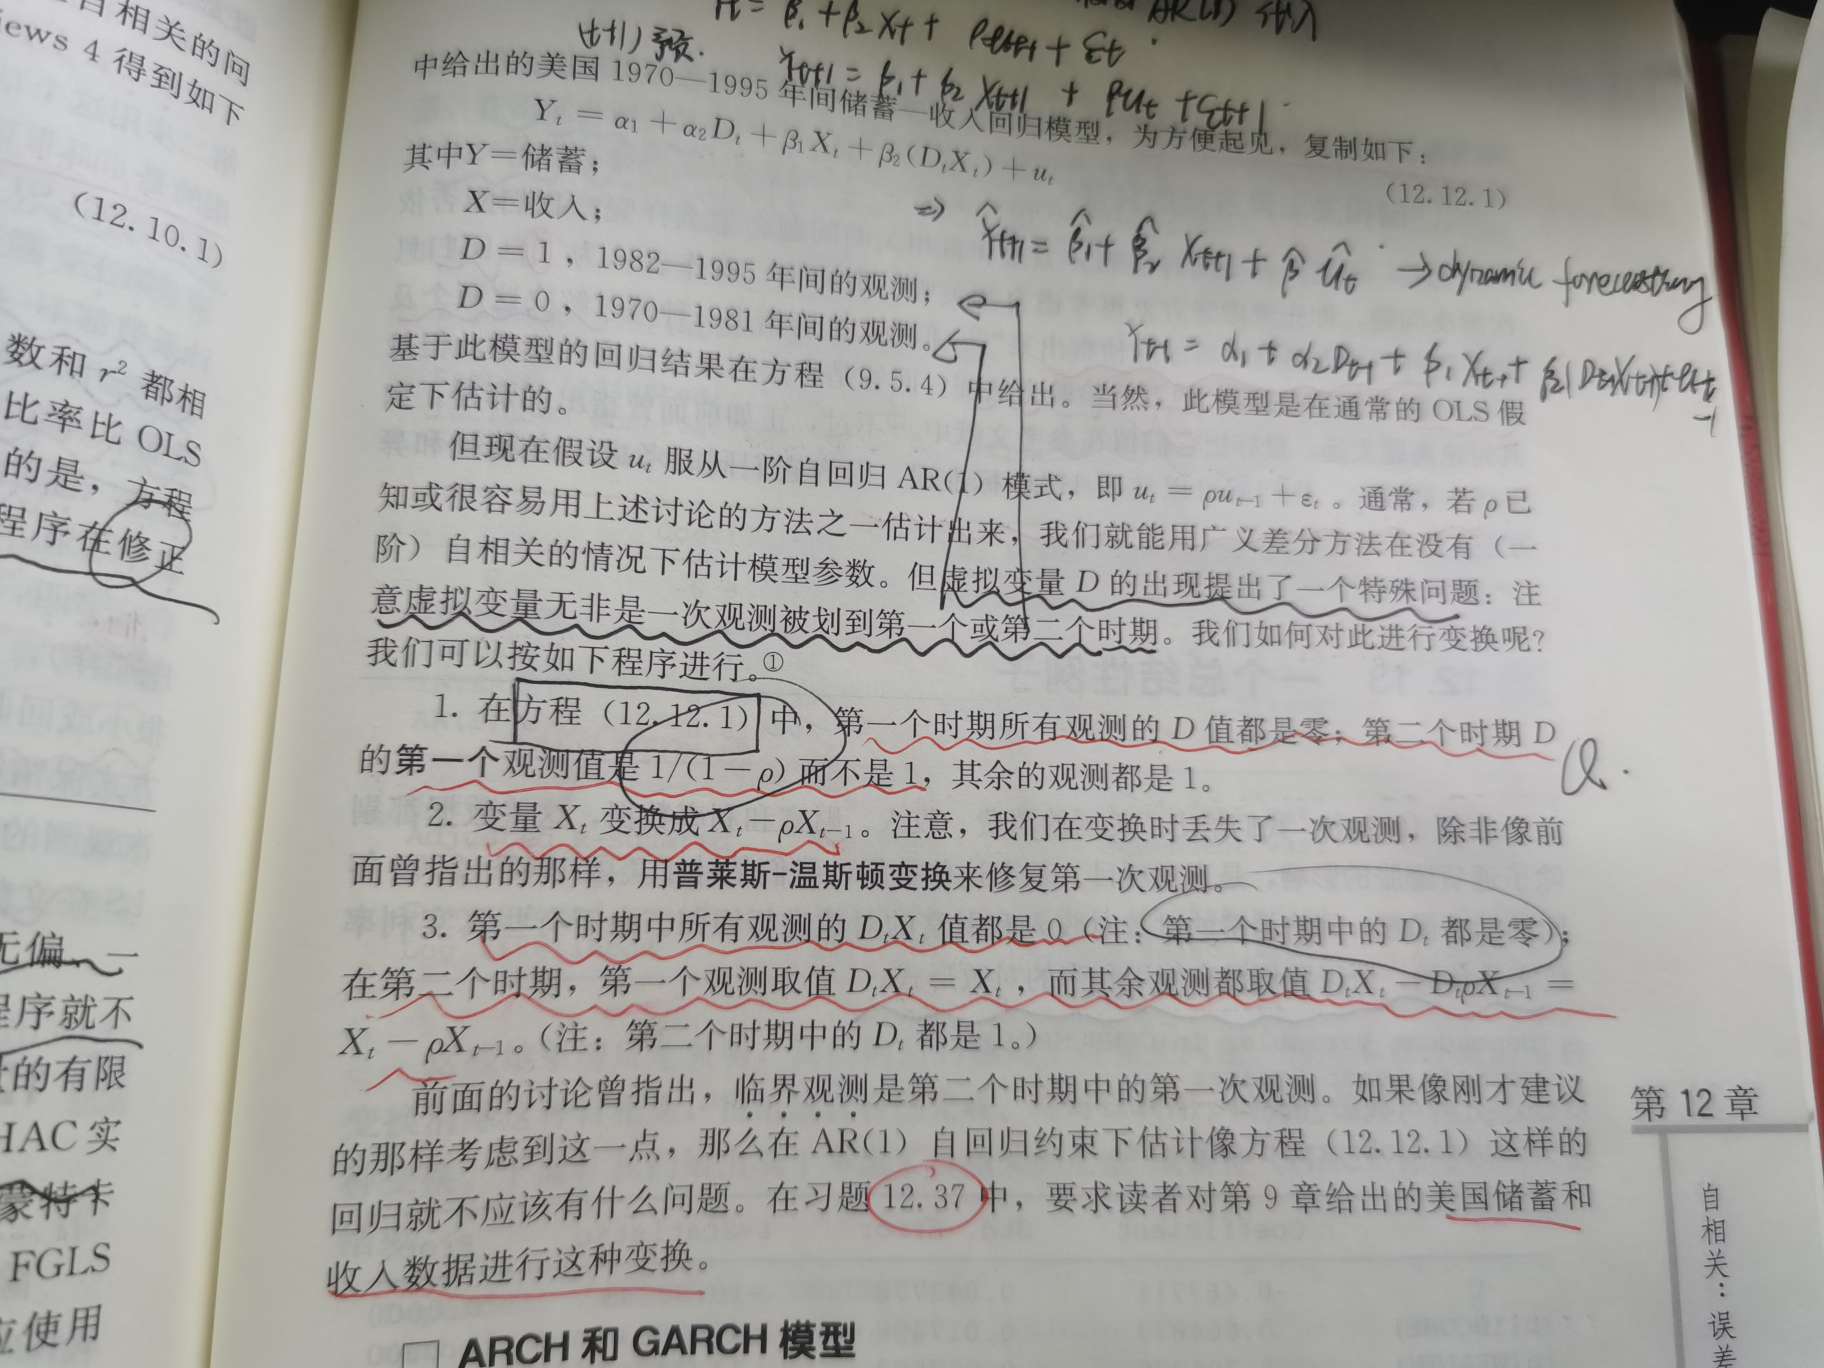 自相关的问
iews 4 得到如下
(12.10.1)
数和 r² 都相
比率比 OLS
的是，方程
程序在修正
无偏、一
程序就不
的有限
HAC 实
蒙特卡
FGLS
应使用
AR(1) 代入
= β₁ + β₂ Xt + + εt
(t+1) 预
Yt+1 = β₁ + β₂ Xt+1 + ρut + εt+1
中给出的美国 1970—1995 年间储蓄—收入回归模型，为方便起见，复制如下：
Yₜ = α₁ + α₂Dₜ + β₁Xₜ + β₂(DₜXₜ) + uₜ (12.12.1)
其中Y＝储蓄；
X＝收入；
⇒ Ŷt+1 = β̂₁ + β̂₂ Xt+1 + ρ̂ ût → dynamic forecasting
D = 1，1982—1995 年间的观测；
D = 0，1970—1981 年间的观测。
Yt-1 = α₁ + α₂Dt-1 + β₁Xt-1 + β₂(Dt-1Xt-1) + ut-1
基于此模型的回归结果在方程（9.5.4）中给出。当然，此模型是在通常的 OLS 假
定下估计的。
但现在假设 uₜ 服从一阶自回归 AR(1) 模式，即 uₜ = ρuₜ₋₁ + εₜ 。通常，若 ρ 已
知或很容易用上述讨论的方法之一估计出来，我们就能用广义差分方法在没有（一
阶）自相关的情况下估计模型参数。但虚拟变量 D 的出现提出了一个特殊问题：注
意虚拟变量无非是一次观测被划到第一个或第二个时期。我们如何对此进行变换呢？
我们可以按如下程序进行。①
1. 在方程（12.12.1）中，第一个时期所有观测的 D 值都是零；第二个时期 D
的第一个观测值是 1/(1－ρ) 而不是 1，其余的观测都是 1。
Q.
2. 变量 Xₜ 变换成 Xₜ－ρXₜ₋₁。注意，我们在变换时丢失了一次观测，除非像前
面曾指出的那样，用普莱斯-温斯顿变换来修复第一次观测。
3. 第一个时期中所有观测的 DₜXₜ 值都是 0（注：第一个时期中的 Dₜ 都是零）；
在第二个时期，第一个观测取值 DₜXₜ = Xₜ，而其余观测都取值 DₜXₜ－DₜρXₜ₋₁ =
Xₜ－ρXₜ₋₁。（注：第二个时期中的 Dₜ 都是 1。）
前面的讨论曾指出，临界观测是第二个时期中的第一次观测。如果像刚才建议
的那样考虑到这一点，那么在 AR(1) 自回归约束下估计像方程（12.12.1）这样的
回归就不应该有什么问题。在习题 12.37 中，要求读者对第 9 章给出的美国储蓄和
收入数据进行这种变换。
□ ARCH 和 GARCH 模型
第 12 章
自相关：误差